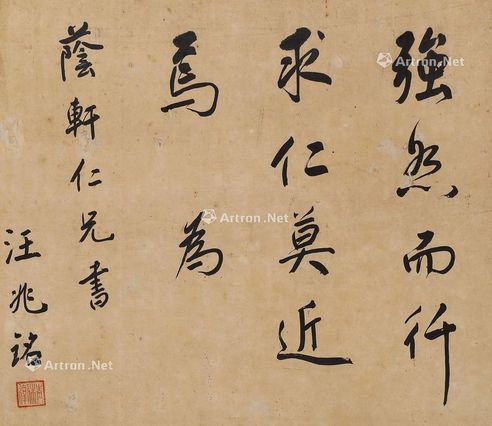 強恕而行
求仁莫近
焉 為
蔭軒仁兄書
汪兆銘
Artron.Net
Artron.Net
Artron.Net
Artron.Net